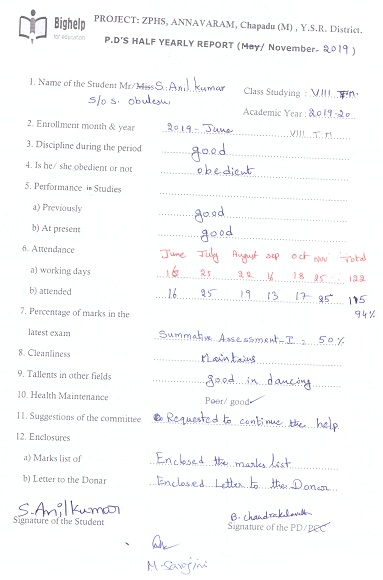 Bighelp
for education
PROJECT: ZPHS, ANNAVARAM, Chapadu (M), Y.S.R. District.
P.D'S HALF YEARLY REPORT (May/ November- 2019)
1. Name of the Student Mr/Miss S. Anil kumar
S/o S. obulesu
Class Studying : VIII T.M.
Academic Year : 2019-20
2. Enrollment month & year 2019 - June VIII T.M
3. Discipline during the period good
4. Is he/ she obedient or not obedient
5. Performance in Studies
a) Previously good
b) At present good
6. Attendance June July August sep oct nov Total
a) working days 16 25 22 16 18 25 122
b) attended 16 25 19 13 17 25 115
94%
7. Percentage of marks in the
latest exam Summative Assessment-I = 50%
8. Cleanliness Maintains
9. Tallents in other fields good in dancing
10. Health Maintenance Poor/ good ✓
11. Suggestions of the committee Requested to continue the help
12. Enclosures
a) Marks list of Enclosed the marks list
b) Letter to the Donar Enclosed Letter to the Donor
S. Anil kumar
Signature of the Student
B. Chandrakanth
Signature of the PD/PCC
M. Sarojini